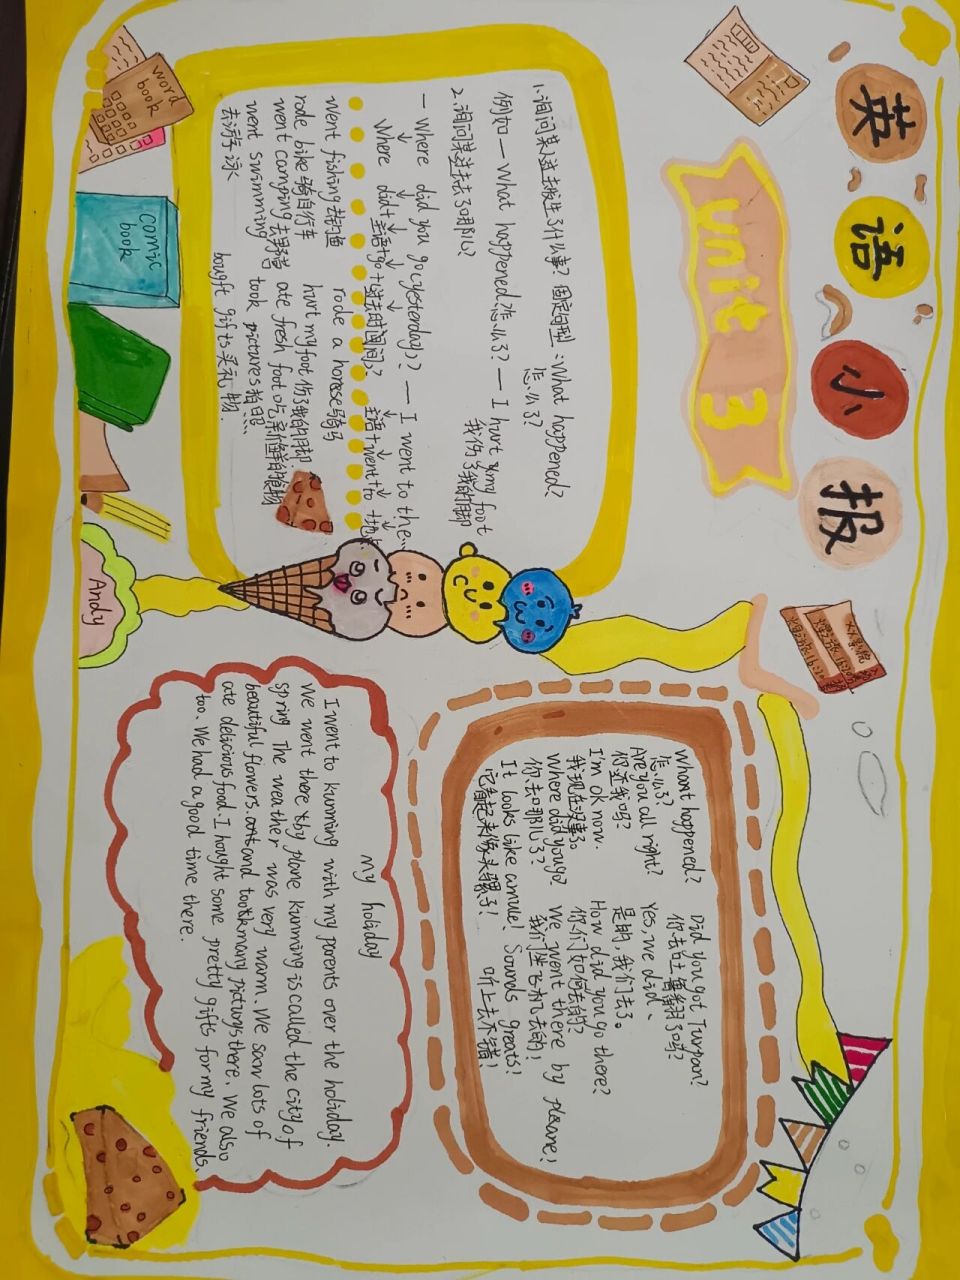 英语小报
Unit 3
word
book
comic
book
1.询问某人过去发生了什么事?固定句型:What happened?
怎么了?
例如 — What happened?怎么了? — I hurt my foot
我伤了我的脚
2.询问某过去去了哪儿?
— Where did you go yesterday? — I went to the...
Where did+主语+go+过去时间? 主语+went to+地点
went fishing去钓鱼 rode a horese骑马
rode bike骑自行车 hurt my foot伤了我的脚
went camping去野营 ate fresh foot吃新鲜的食物
went swimming took pictures拍照
去游泳 bougft gifts买礼物.
Andy
What happened?
怎么了?
Are you all right?
你还好吗?
I'm ok now.
我现在没事了。
Where did you go?
你去哪儿了?
It looks like amule!
它看起来像头骡子!
Did you got Turpan?
你去吐鲁番了吗?
Yes, we did.
是的,我们去了。
How did you go there?
你们如何去的?
We went there by plane!
我们坐飞机去的!
Sounds greats!
听上去不错!
my holiday
I went to kunming with my parents over the holiday.
We went there by plane kunming is called the city of
spring The weather was very warm. We saw lots of
beautiful flowers. and took many pictures there. We also
ate delicious food. I hought some pretty gifts for my friends,
too. We had a good time there.